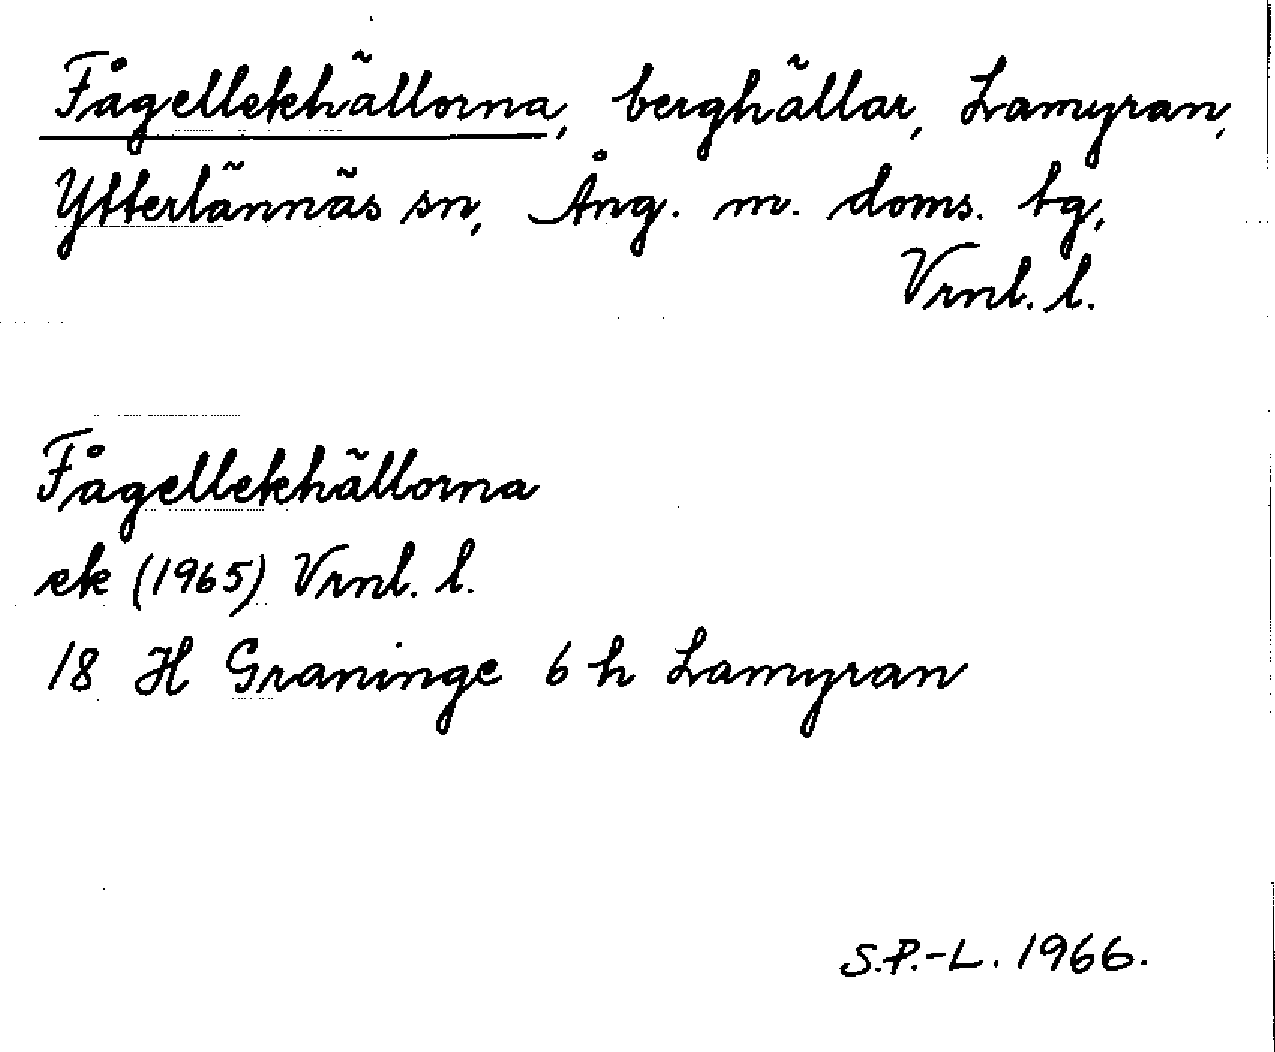 Fågellekhällorna, berghällar, Lamyran,
Ytterlännäs sn, Ång. m. doms. tg,
Vrnl. l.
Fågellekhällorna
ek (1965) Vrnl. l.
18 H Graninge 6 h Lamyran
S.P.-L. 1966.